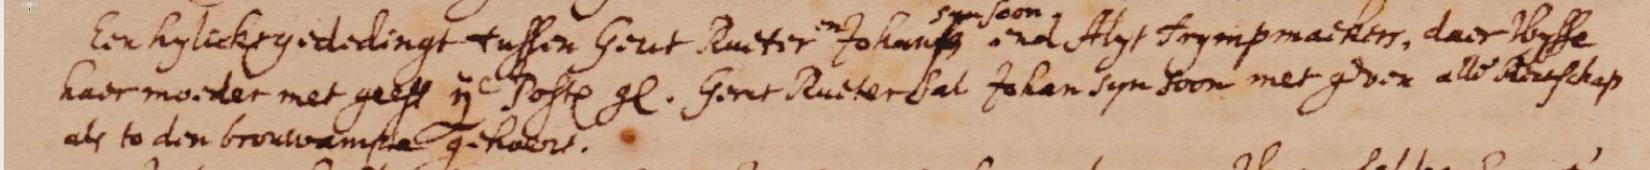 Een hylicksgededingt tussen Gerrit Rueter en Johan syn soon end Alyt Trympmackers, daer Wysse
haer moeder met geeft ijc Post gl. Gerrit Rueter sal Johan syn soon met geven alle Reetschap
als to den brouwampte gehoert.